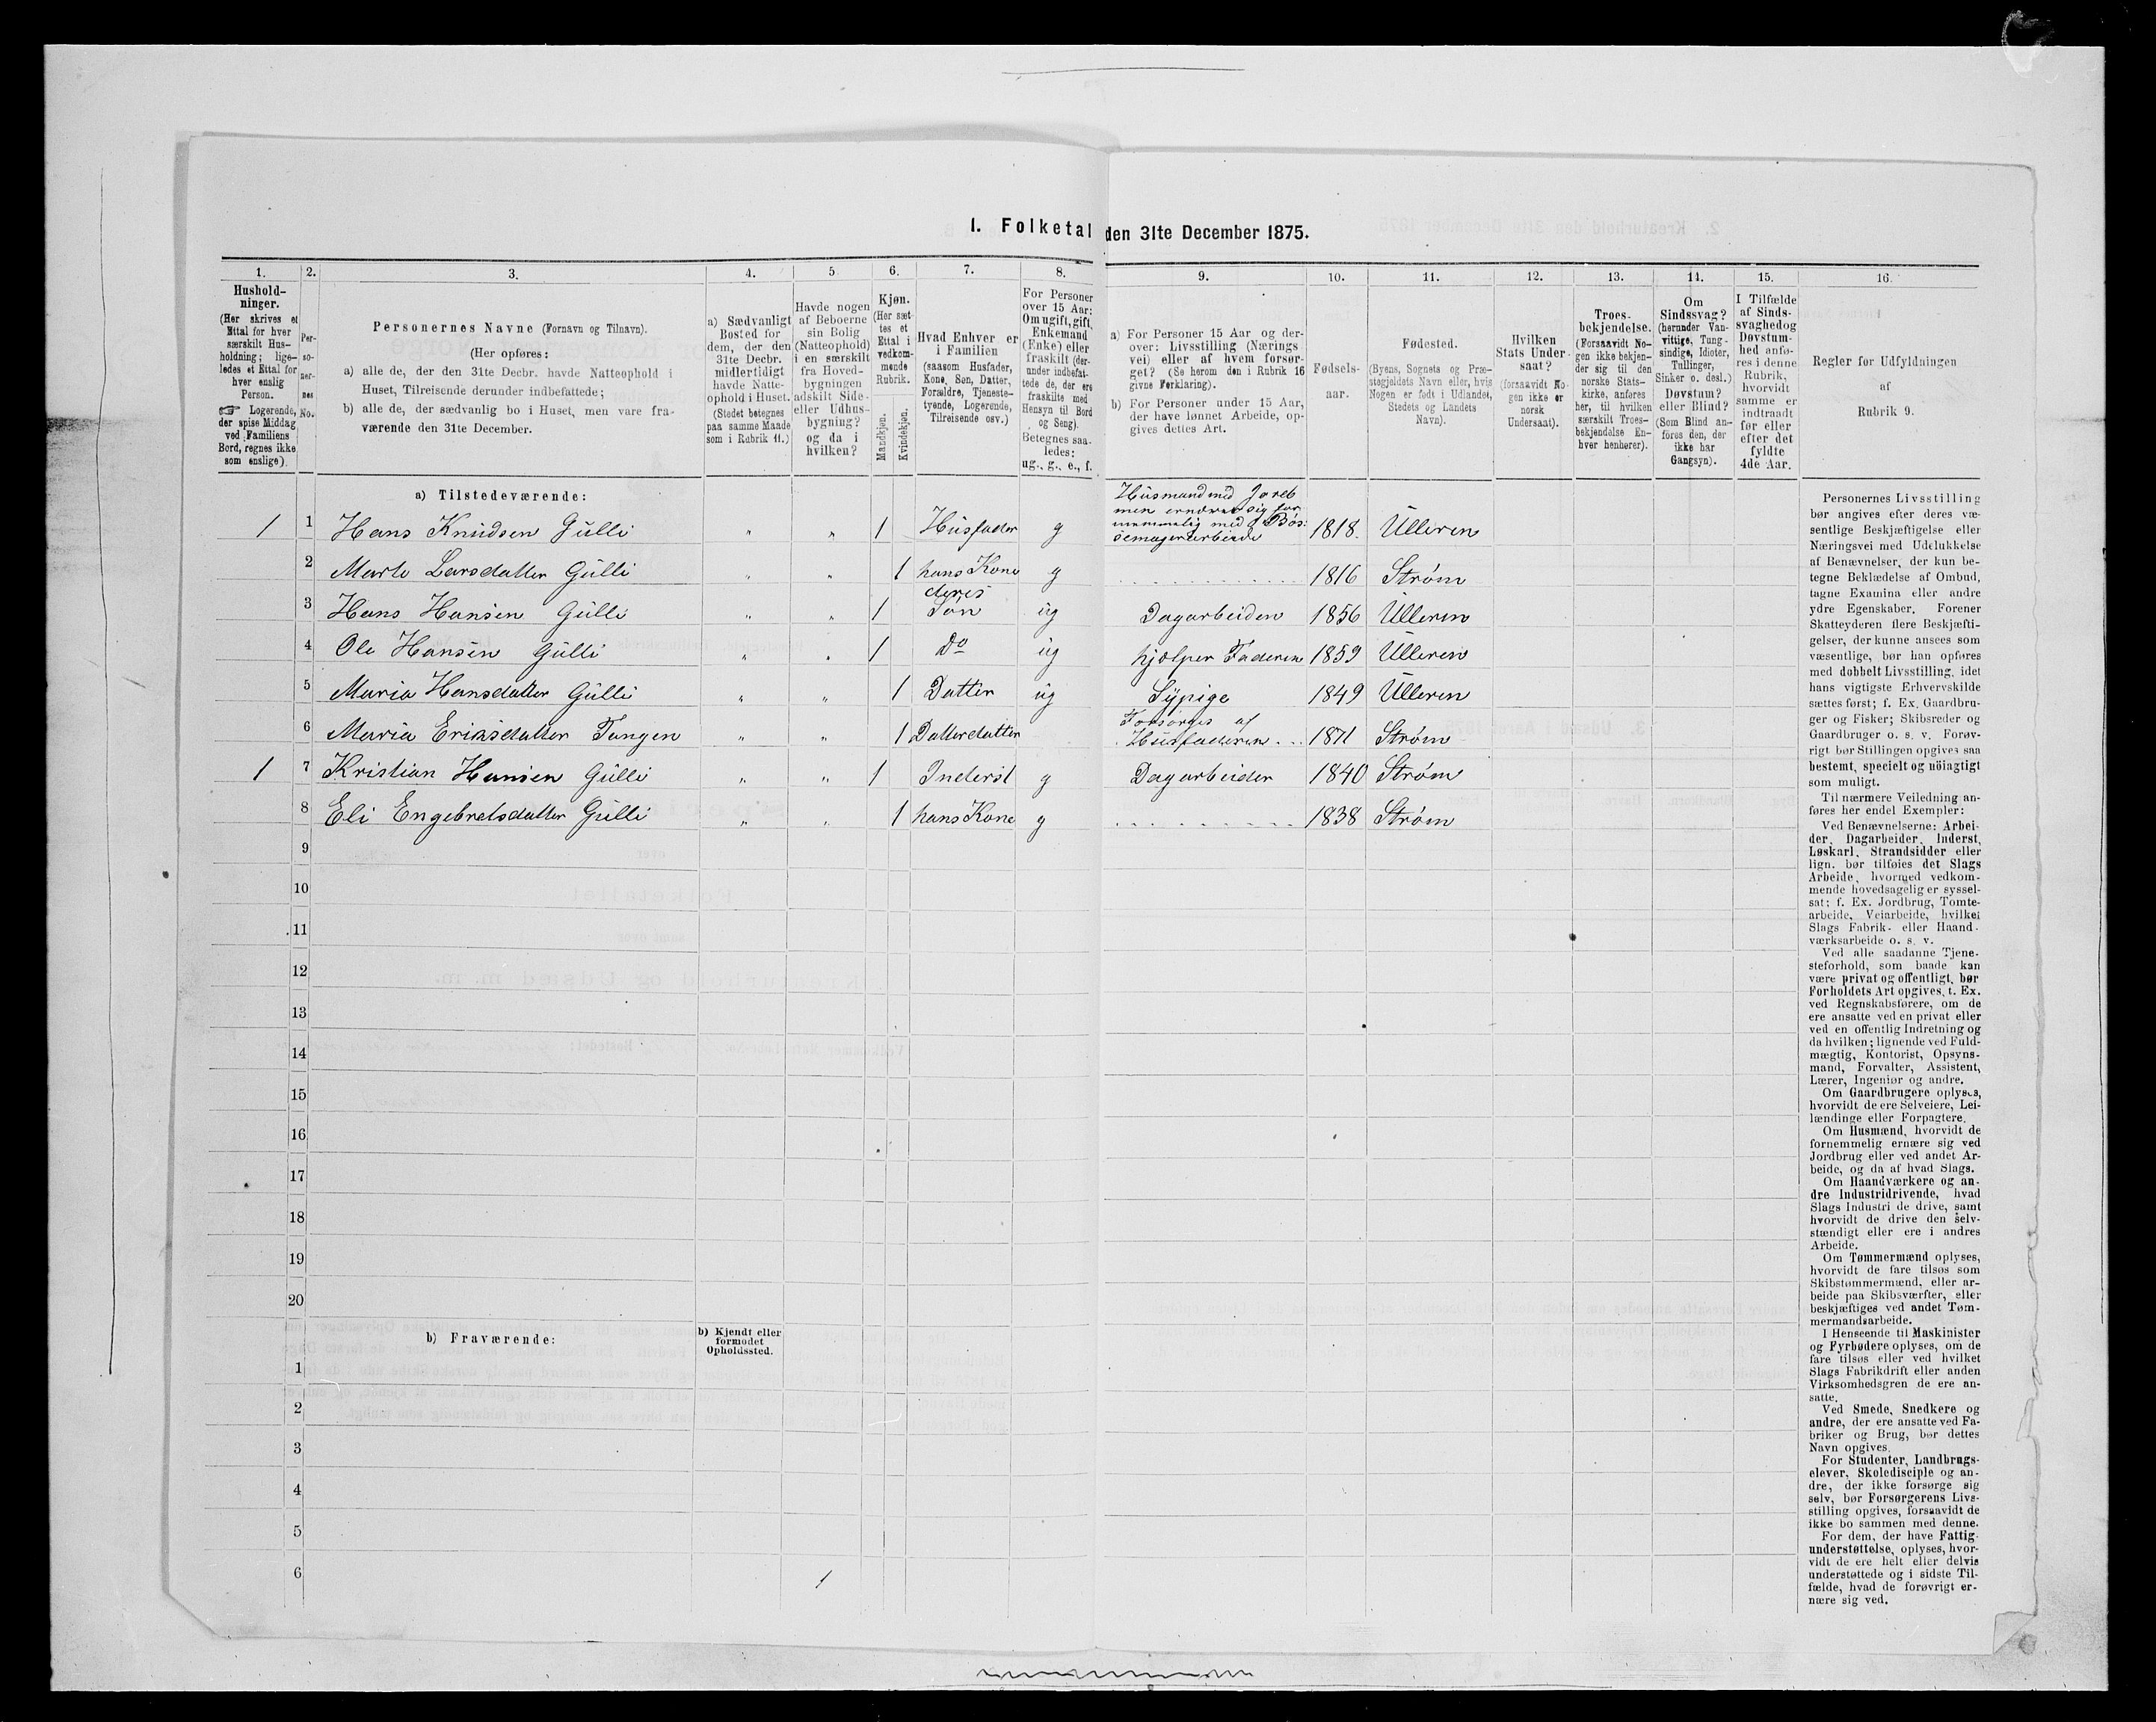 I. Folketal den 31te December 1875.
1.
2.
3.
4.
5.
6.
7.
8.
9.
10.
11.
12.
13.
14.
15.
16.
Hushold-
ninger.
(Her skrives et
Ettal for hver
særskilt Hus-
holdning; lige-
ledes et Ettal for
hver enslig
Person.
☞ Logerende,
der spise Middag
ved Familiens
Bord, regnes ikke
som enslige).
Per-
so-
ner-
nes
No.
Personernes Navne (Fornavn og Tilnavn).
(Her opføres:
a) alle de, der den 31te Decbr. havde Natteophold i
Huset, Tilreisende derunder indbefattede;
b) alle de, der sædvanlig bo i Huset, men vare fra-
værende den 31te December.
a) Sædvanligt
Bosted for
dem, der den
31te Decbr.
midlertidigt
havde Natte-
ophold i Huset.
(Stedet betegnes
paa samme Maade
som i Rubrik 11.)
Havde nogen
af Beboerne
sin Bolig
(Natteophold)
i en særskilt
fra Hoved-
bygningen
adskilt Side-
eller Udhus-
bygning?
og da i
hvilken?
Kjøn.
(Her sæt-
tes et
Ettal i
vedkom-
mende
Rubrik.
Mandkjøn.
Kvindekjøn.
Hvad Enhver er
i Familien
(saasom Husfader,
Kone, Søn, Datter,
Forældre, Tjeneste-
tyende, Logerende,
Tilreisende osv.)
For Personer
over 15 Aar:
Om ugift, gift,
Enkemand
(Enke) eller
fraskilt (der-
under indbefat-
tede de, der ere
fraskilte med
Hensyn til Bord
og Seng).
Betegnes saa-
ledes:
ug., g., e., f.
a) For Personer 15 Aar og der-
over: Livsstilling (Nærings
vei) eller af hvem forsør-
get? (Se herom den i Rubrik 16
givne Forklaring).
b) For Personer under 15 Aar,
der have lønnet Arbeide, op-
gives dettes Art.
Fødsels-
aar.
Fødested.
(Byens, Sognets og Præ-
stegjeldets Navn eller, hvis
Nogen er født i Udlandet,
Stedets og Landets
Navn).
Hvilken
Stats Under-
saat?
(forsaavidt No-
gen ikke er
norsk
Undersaat).
Troes-
bekjendelse.
(Forsaavidt No-
gen ikke bekjen-
der sig til den
norske Stats-
kirke, anføres
her, til hvilken
særskilt Troes-
bekjendelse En-
hver henhører).
Om
Sindssvag?
(herunder Van-
vittige, Tung-
sindige, Idioter,
Tullinger,
Sinker o. desl.)
Døvstum?
eller Blind?
(Som Blind an-
føres den, der
ikke har
Gangsyn).
I Tilfælde
af Sinds-
svaghedog
Døvstum-
hed anfø-
res i denne
Rubrik,
hvorvidt
samme er
indtraadt
før eller
efter det
fyldte
4de Aar.
Regler før Udfyldningen
af
Rubrik 9.
a) Tilstedeværende:
Husmand med Jord
men ernærer sig for
nemmelig med Bøs:
semagerarbeide
1 1 Hans Knudsen Gulli " " 1 Husfader g 1818. Ulleren
2 Marte Larsdatter Gulli " " 1 hans Kone g 1816 Strøm
deres
3 Hans Hansen Gulli " " 1 Søn ug Dagarbeider 1856 Ulleren
4 Ole Hansen Gulli " " 1 Do ug hjælper Faderen 1859 Ulleren
5 Maria Hansdatter Gulli " " 1 Datter ug Sypige 1849 Ulleren
Forsørges af
6 Maria Eriksdatter Tangen " " 1 Datterdatter Husfaderen 1871 Strøm
1 7 Kristian Hansen Gulli " " 1 Inderst g Dagarbeider 1840 Strøm
8 Eli Engebretsdatter Gulli " " 1 hans Kone g 1838 Strøm
9
10
11
12
13
14
15
16
17
18
19
20
b) Fraværende:
b) Kjendt eller
formodet
Opholdssted.
1
2
3
4
5
6
Personernes Livsstilling
bør angives efter deres væ-
sentlige Beskjæftigelse eller
Næringsvei med Udelukkelse
af Benævnelser, der kun be-
tegne Beklædelse af Ombud,
tagne Examina eller andre
ydre Egenskaber. Forener
Skatteyderen flere Beskjæfti-
gelser, der kunne ansees som
væsentlige, bør han opføres
med dobbelt Livsstilling, idet
hans vigtigste Erhvervskilde
sættes først; f. Ex. Gaardbru-
ger og Fisker; Skibsreder og
Gaardbruger o. s. v. Forøv-
rigt bør Stillingen opgives saa
bestemt, specielt og nøiagtigt
som muligt.
Til nærmere Veiledning an-
føres her endel Exempler:
Ved Benævnelserne: Arbei-
der, Dagarbeider, Inderst,
Løskarl, Strandsidder eller
lign. bør tilføies det Slags
Arbeide, hvormed vedkom-
mende hovedsagelig er syssel-
sat; f. Ex. Jordbrug, Tomte-
arbeide, Veiarbeide, hvilket
Slags Fabrik- eller Haand-
værksarbeide o. s. v.
Ved alle saadanne Tjene-
steforhold, som baade kan
være privat og offentligt, bør
Forholdets Art opgives, t. Ex.
ved Regnskabsførere, om de
ere ansatte ved en privat eller
ved en offentlig Indretning og
da hvilken; lignende ved Fuld-
mægtig, Kontorist, Opsyns-
mand, Forvalter, Assistent,
Lærer, Ingeniør og andre.
Om Gaardbrugere oplyses,
hvorvidt de ere Selveiere, Lei-
lændinge eller Forpagtere.
Om Husmænd, hvorvidt de
fornemmelig ernære sig ved
Jordbrug eller ved andet Ar-
beide, og da af hvad Slags.
Om Haandværkere og an-
dre Industridrivende, hvad
Slags Industri de drive, samt
hvorvidt de drive den selv-
stændigt eller ere i andres
Arbeide.
Om Tømmermænd oplyses,
hvorvidt de fare tilsøs som
Skibstømmermænd, eller ar-
beide paa Skibsværfter, eller
beskjæftiges ved andet Tøm-
mermandsarbeide.
I Henseende til Maskinister
og Fyrbødere oplyses, om de
fare tilsøs eller ved hvilket
Slags Fabrikdrift eller anden
Virksomhedsgren de ere an-
satte.
Ved Smede, Snedkere og
andre, der ere ansatte ved Fa-
briker og Brug, bør dettes
Navn opgives.
For Studenter, Landbrugs-
elever, Skoledisciple og an-
dre, der ikke forsørge sig
selv, bør Forsørgerens Livs-
stilling opgives, forsaavidt de
ikke bo sammen med denne.
For dem, der have Fattig-
understøttelse, oplyses, hvor-
vidt de ere helt eller delvis
understøttede og i sidste Til-
fælde, hvad de forøvrigt er-
nære sig ved.